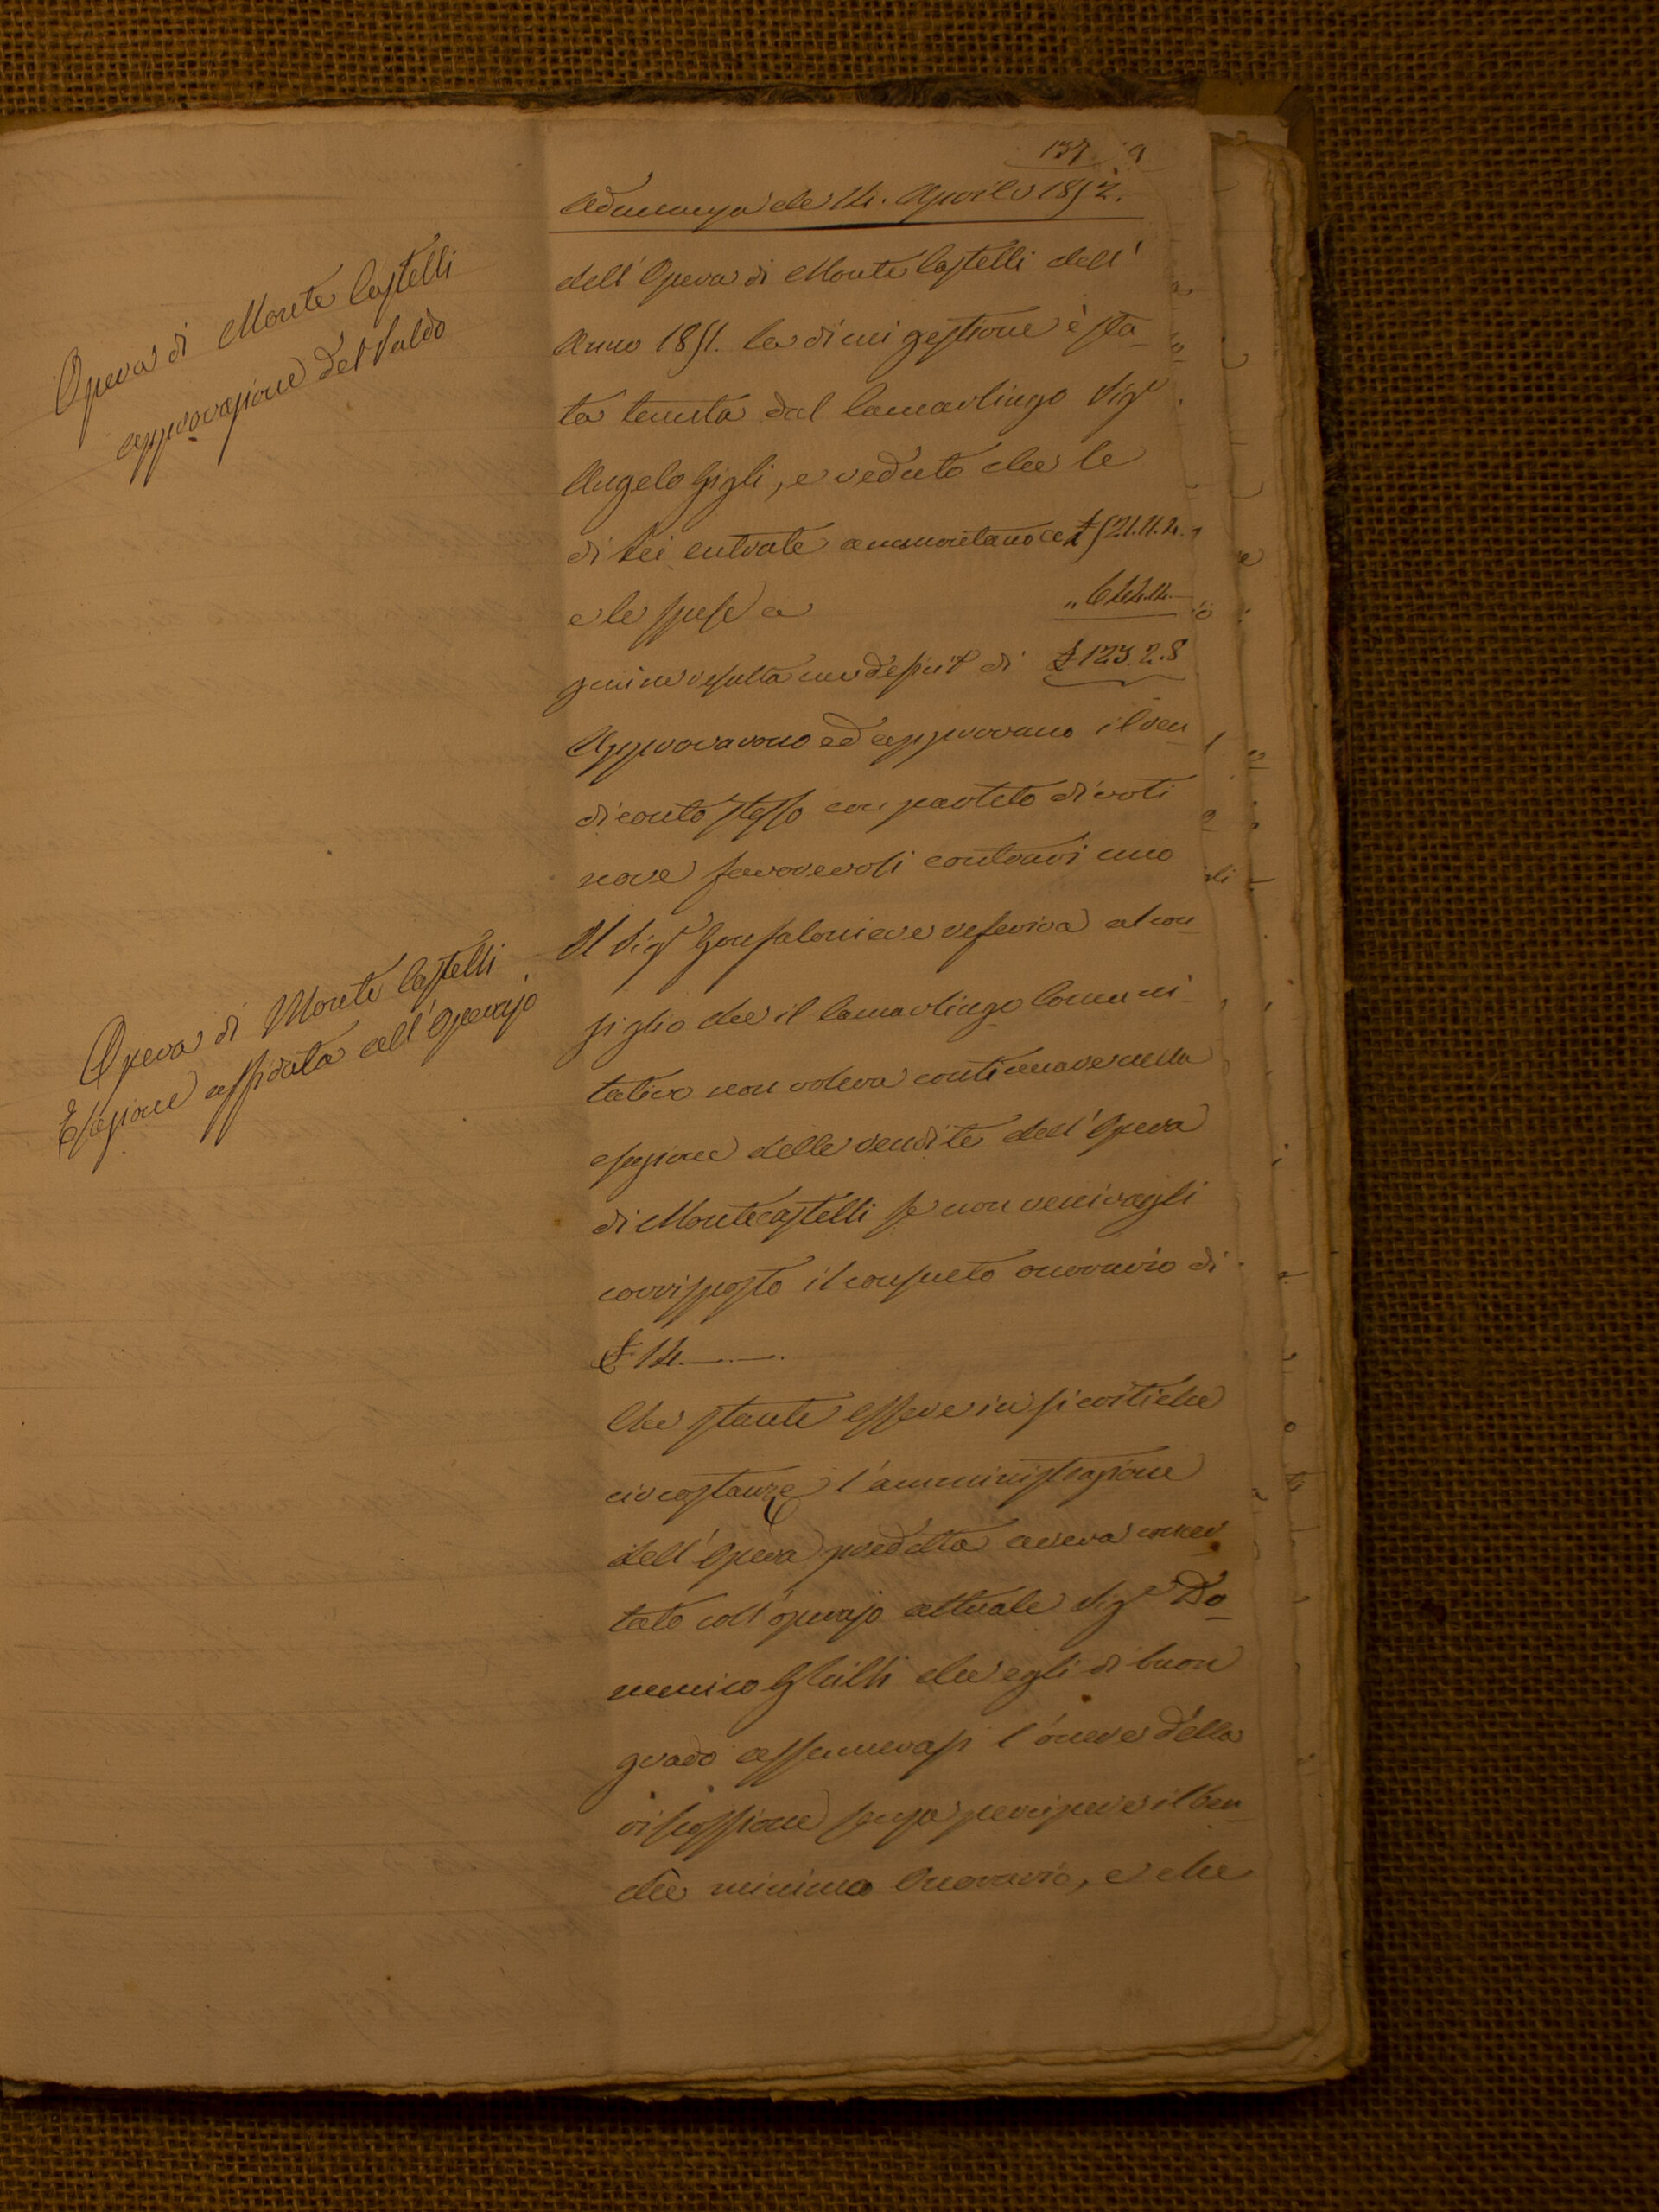 137
Adunanza de 14. Aprile 1852.
Opera di Monte Castelli
approvazione del Saldo
dell'Opera di Monte Castelli dell'
Anno 1851. la di cui gestione è sta_
ta tenuta dal Camarlingo Sigr
Angelo Gigli, e veduto che le
di Lei entrate ammontano a £ 521.11.4.
e le spese a " 644.14._
quine resulta un deficit di £ 123.2.8
Approvarono ed approvano il ren_
diconto stesso con partito di voti
nove favorevoli contrari uno
Opera di Monte Castelli
Esazione affidata all'Operajo
Il Sigr Gonfaloniere referiva al con_
siglio che il Camarlingo Comuni_
tativo non voleva continuare nella
esazione delle rendite dell'Opera
di Montecastelli se non venivagli
corrisposto il consueto onorario di
£ 14._._.
Che stante essere in si critiche
circostanze l'amministrazione
dell'Opera predetta aveva concer
tato coll'operajo attuale Sigr Do_
menico Ghilli che egli di buon
grado assumevasi l'onere della
riscossione senza percipere il ben_
chè minimo Onorario, e che